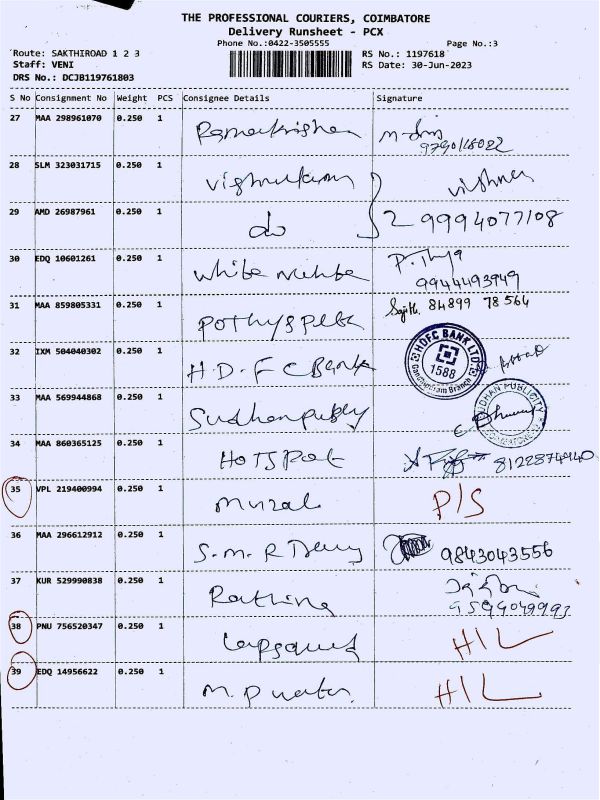 THE PROFESSIONAL COURIERS, COIMBATORE
Delivery Runsheet - PCX
Phone No.:0422-3505555
Page No.:3
Route: SAKTHIROAD 1 2 3
RS No.: 1197618
Staff: VENI
RS Date: 30-Jun-2023
DRS No.: DCJB119761803
S No Consignment No Weight PCS Consignee Details Signature
27 MAA 298961070 0.250 1
28 SLM 323031715 0.250 1
29 AMD 26987961 0.250 1 do 2 9994077108
30 EDQ 10601261 0.250 1 White
9944493949
31 MAA 859805331 0.250 1 84899 78564
32 IXM 504040302 0.250 1 H.D.F C Bank HDFC BANK LTD
1588
33 MAA 569944868 0.250 1
34 MAA 860365125 0.250 1 HOTSPOt 8122874940
35 VPL 219400994 0.250 1 P/S
36 MAA 296612912 0.250 1 S.M.R 9843043556
37 KUR 529990838 0.250 1 Rathina
38 PNU 756520347 0.250 1 H/L
39 EDQ 14956622 0.250 1 H/L